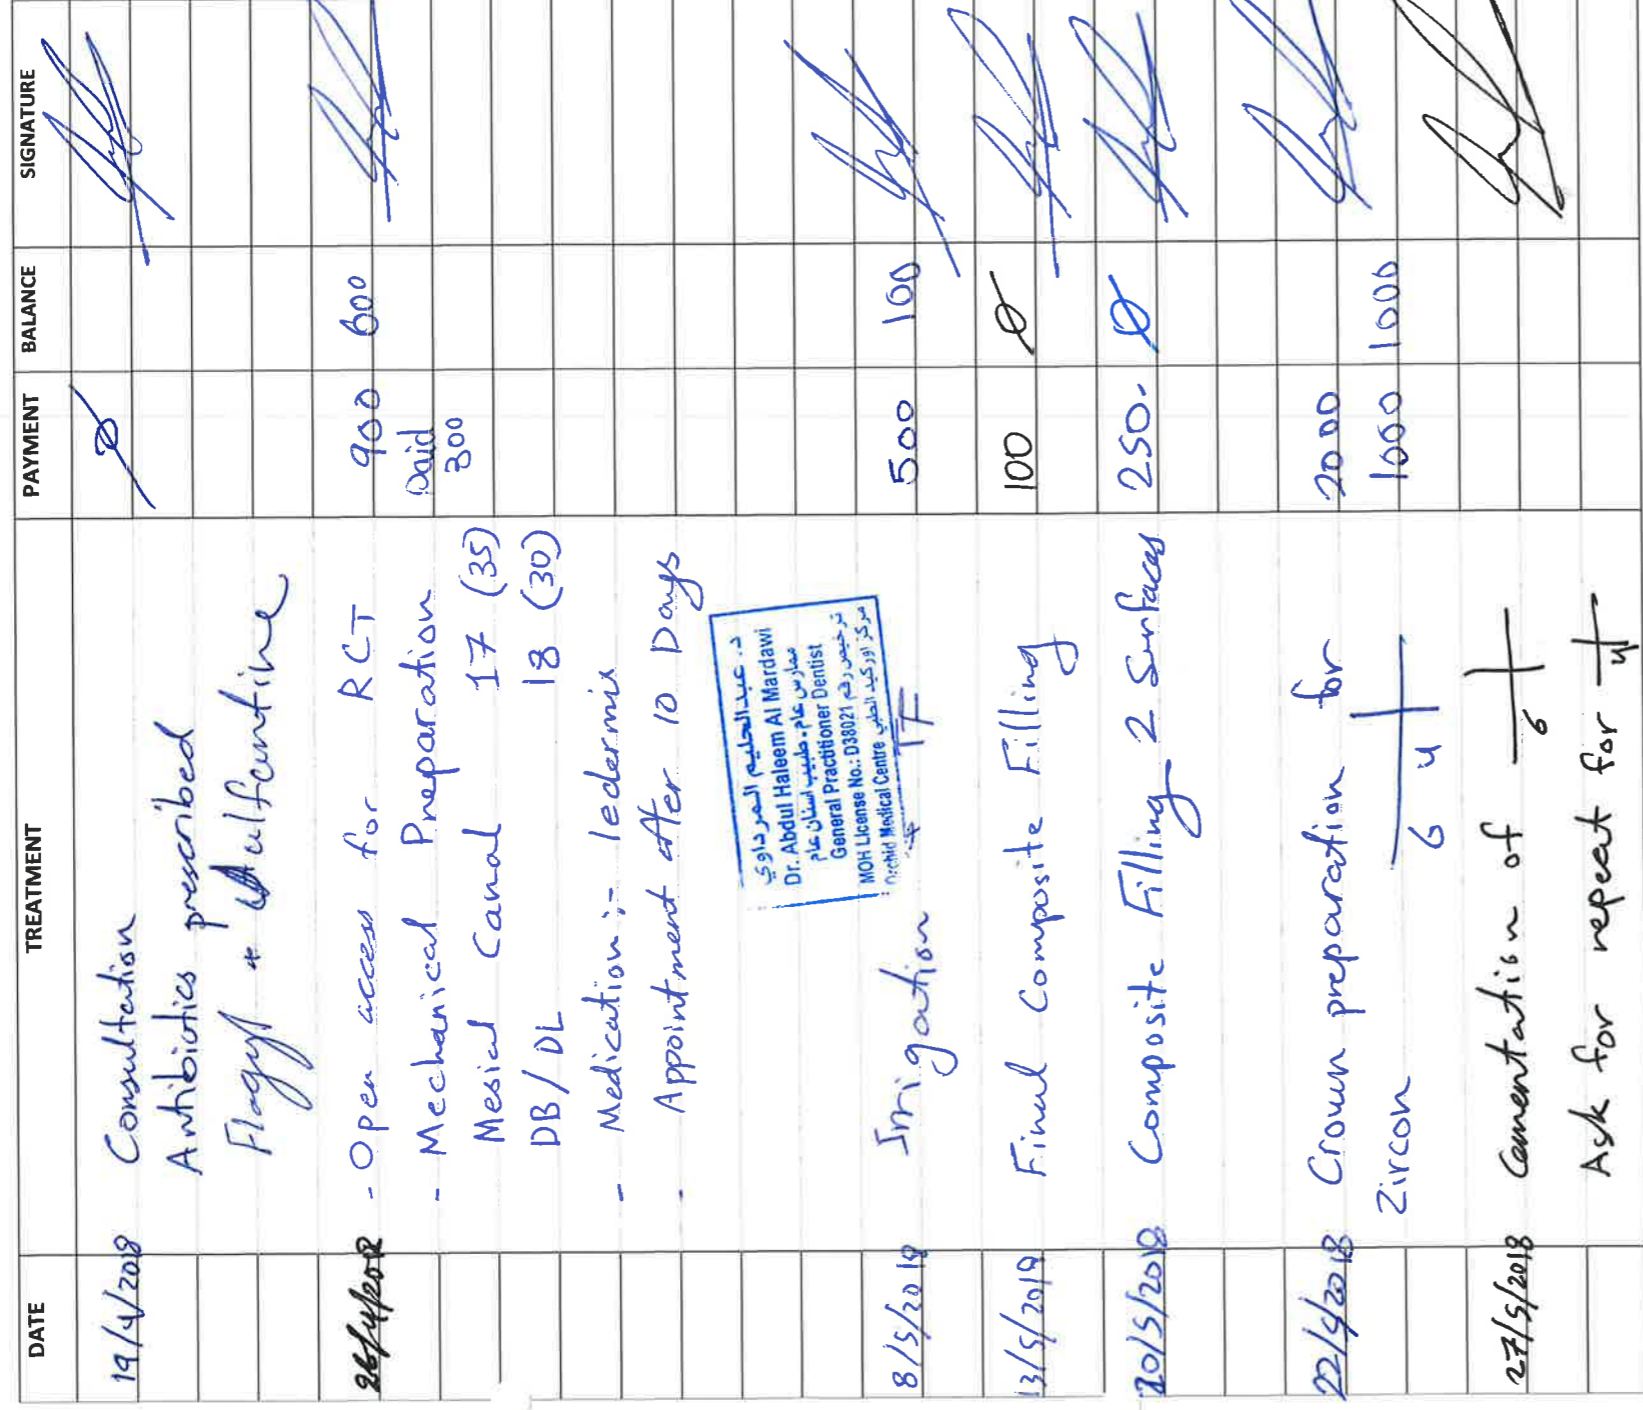 DATE TREATMENT PAYMENT BALANCE SIGNATURE
19/4/2018 Consultation Ø
Antibiotics prescribed
Flagyl +
26/4/2018 - Open access for RCT 900 600
- Mechanical Preparation Paid
Mesial Canal 17 (35) 300
DB/DL 18 (30)
- Medication :- ledermix
- Appointment After 10 Days
د. عبد الحليم المرداوي
Dr. Abdul Haleem Al Mardawi
ممارس عام - طبيب اسنان عام
General Practitioner Dentist
MOH License No.: D38021 ترخيص رقم
Orchid Medical Centre مركز اوركيد الطبي
8/5/2018 Irrigation + TF 500 100
13/5/2018 Final Composite Filling 100 Ø
20/5/2018 Composite Filling 2 Surfaces 250.- Ø
22/5/2018 Crown preparation for 2000
Zircon 6 4 1000 1000
27/5/2018 Cementation of 6
Ask for repeat for 4